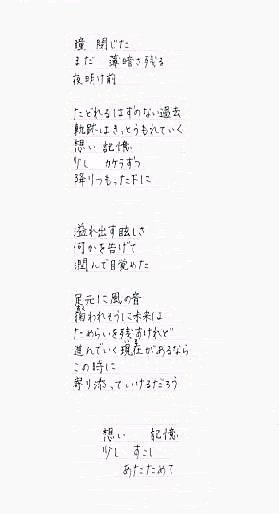 瞳 閉じた
まだ 薄暗さ残る
夜明け前
たどれるはずのない過去
軌跡はきっとうもれていく
想い 記憶
少し カケラずつ
降りつもった下に
溢れ出す眩しさ
何かを告げて
潤んで目覚めた
足元に風の音
掬われそうに未来は
ためらいを残すけれど
進んでいく現在があるなら
この時に
寄り添っていけるだろう
想い 記憶
少し すこし
あたためて